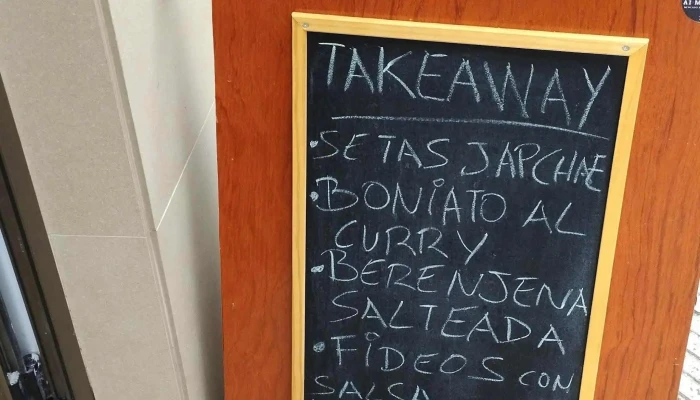 TAKEAWAY
• SETAS JAPCHAE
• BONIATO AL
CURRY
• BERENJENA
SALTEADA
• FIDEOS CON
SALSA